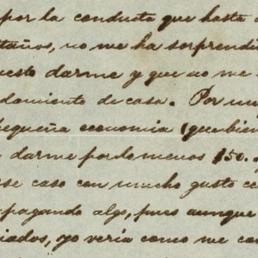 por la conducta que hasta
taños, no me ha sorprendi
uesto darme y que no me
damiento de casa. Por un
pequeña economia (que bien
darme por lo menos $50.
se caso con mucho gusto ce
pagando algo, pues aunque
iados, yo vería como me co